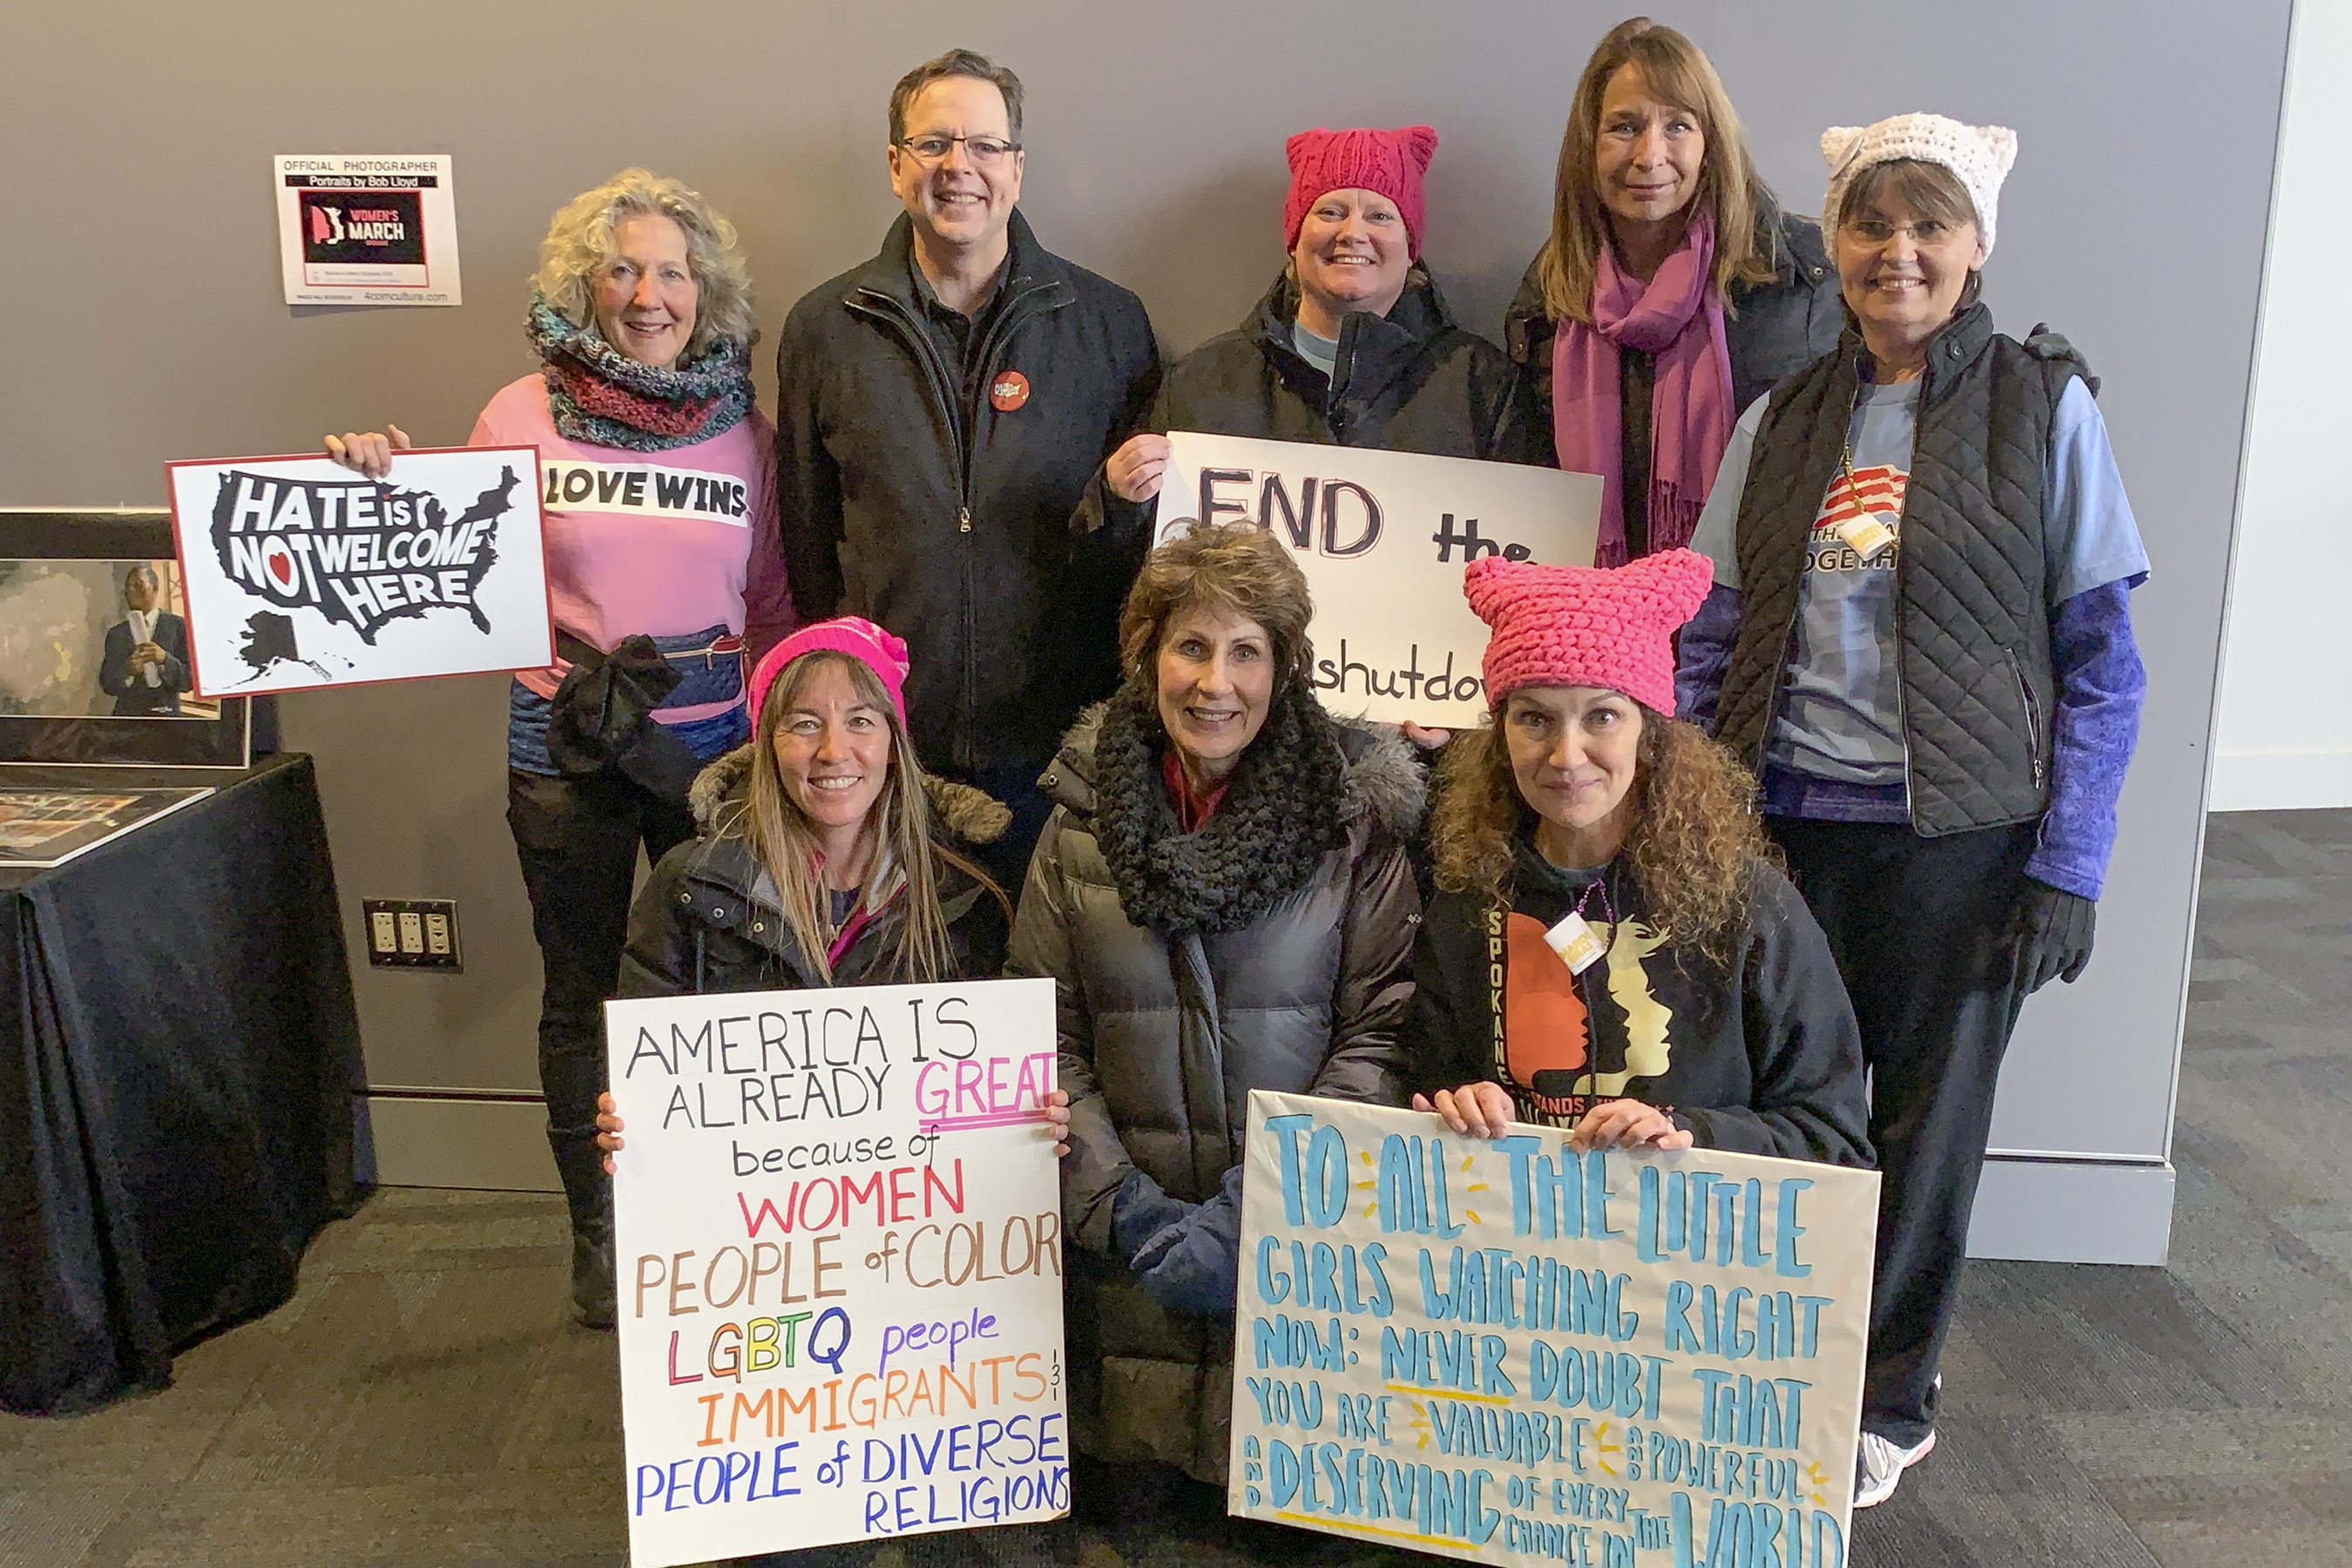 OFFICIAL PHOTOGRAPHER
Portraits by Bob Lloyd
WOMEN'S
MARCH
SPOKANE
4comculture.com
HATE is
NOT WELCOME
HERE
LOVE WINS
END the
shutdo
OGETH
SPOKANE
AMERICA IS
ALREADY GREAT
because of
WOMEN
PEOPLE of COLOR
LGBTQ people
IMMIGRANTS &
PEOPLE of DIVERSE
RELIGIONS
TO ALL THE LITTLE
GIRLS WATCHING RIGHT
NOW: NEVER DOUBT THAT
YOU ARE VALUABLE AND POWERFUL
AND DESERVING OF EVERY
CHANCE IN THE WORLD